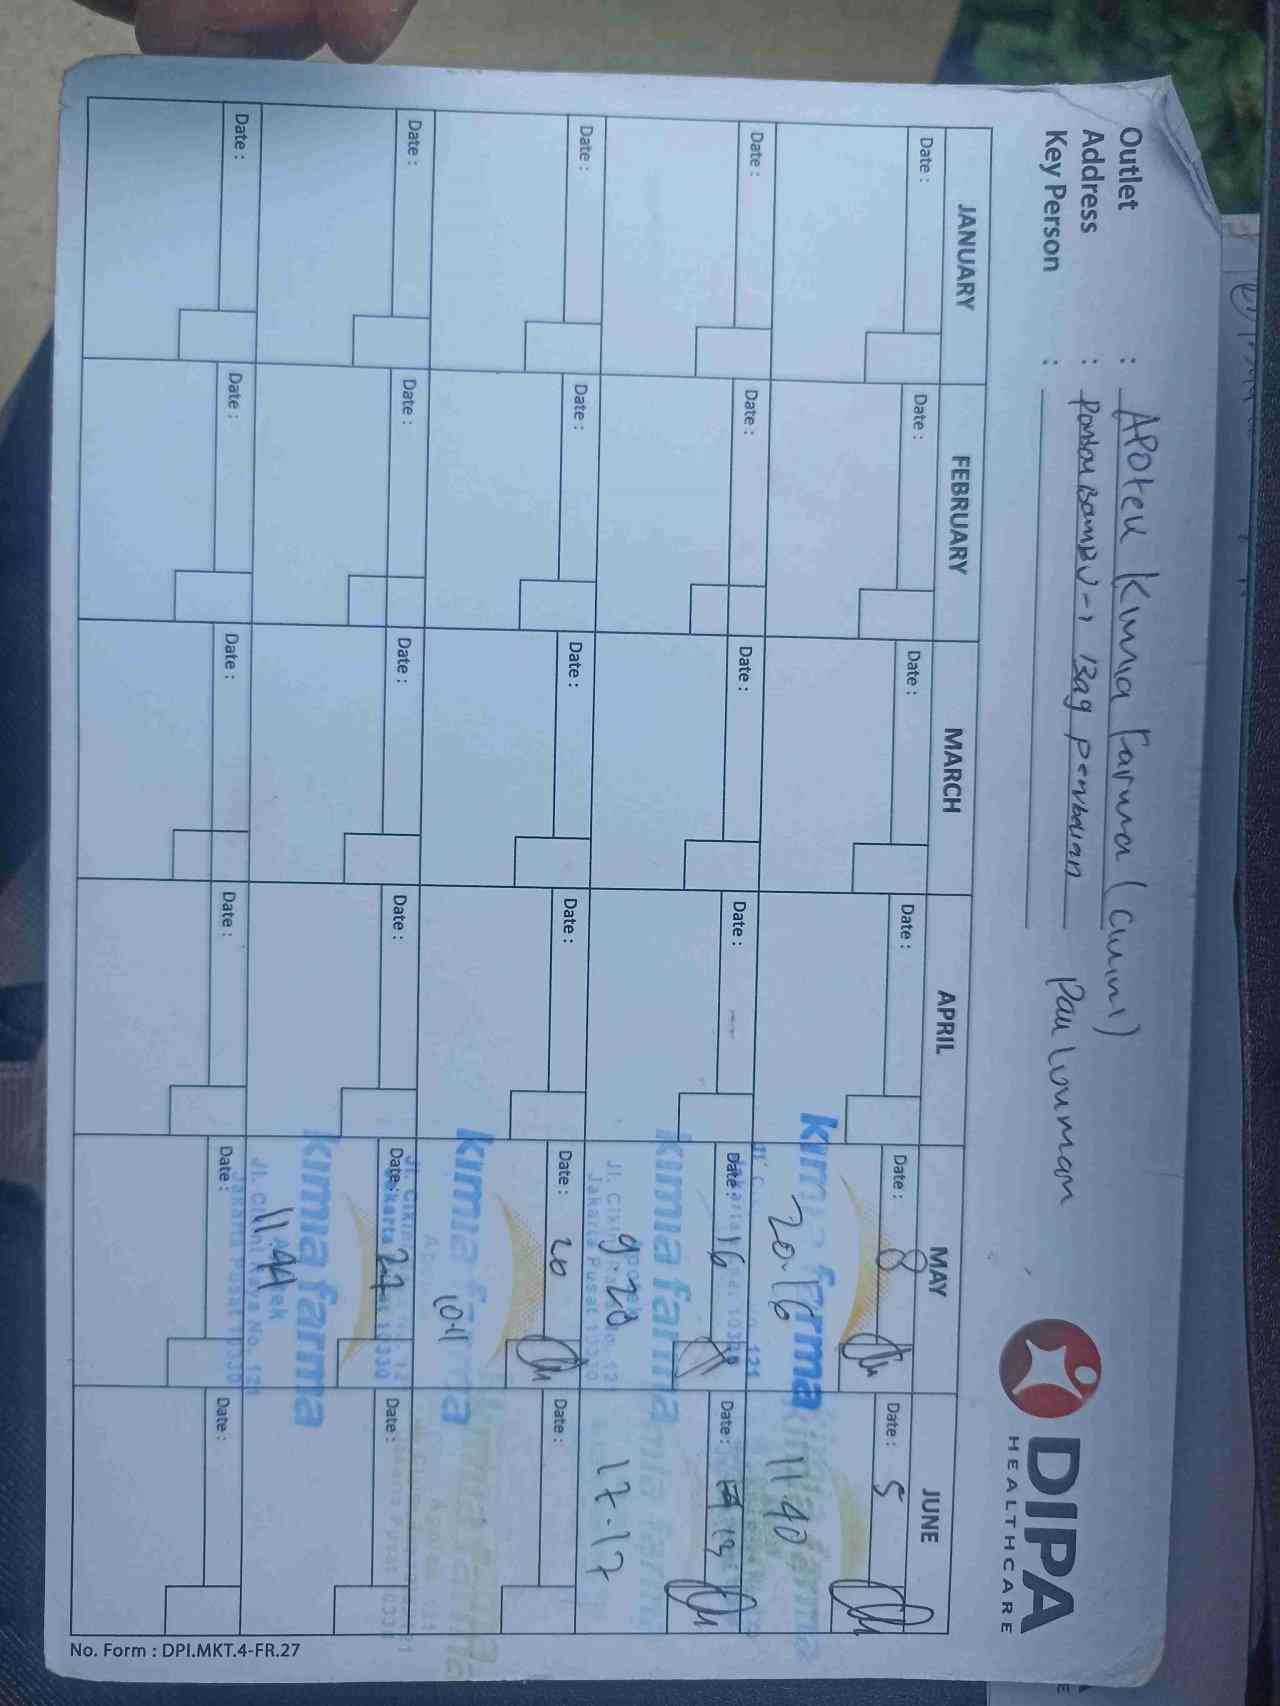 Outlet : Apotek Kimia Farma (Cikini)
Address :
Key Person :
DIPA
HEALTHCARE
JANUARY FEBRUARY MARCH APRIL MAY JUNE
Date : Date : Date : Date : Date : 8 Date : 5
kimia farma
20.16 11 40
Date : Date : Date : Date : Date : 16 Date : 13
kimia farma
9 20 17-17
Date : Date : Date : Date : Date : 20 Date :
kimia farma
10.11
Date : Date : Date : Date : Date : 27 Date :
kimia farma
11 44
Apotek
Jl. Cikini Raya No. 121
Jakarta Pusat 10330
Date : Date : Date : Date : Date : Date :
No. Form : DPI.MKT.4-FR.27